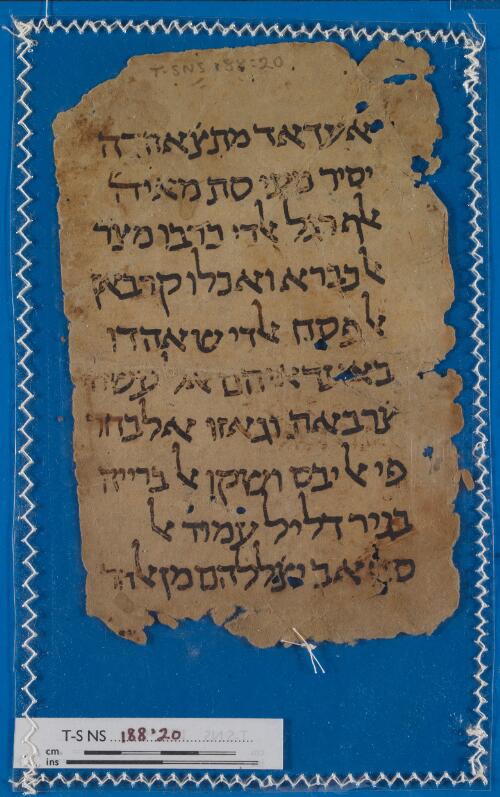 T-S NS 188:20
אעדאד מתצאהדה
יסיר מעי סת מאיה
אלף רגל אלדי כרגו מצר
אלבגרא ואכלו קרבאן
אלפסח אלדי שאהדו
באעיאנהם אל עשר
צרבאת וגאזו אלבחר
פי אליבס ושקו אל ברייה
בגיר דליל עמוד אל
סחאב יצללהם מן
T-S NS 188:20
cm
ins